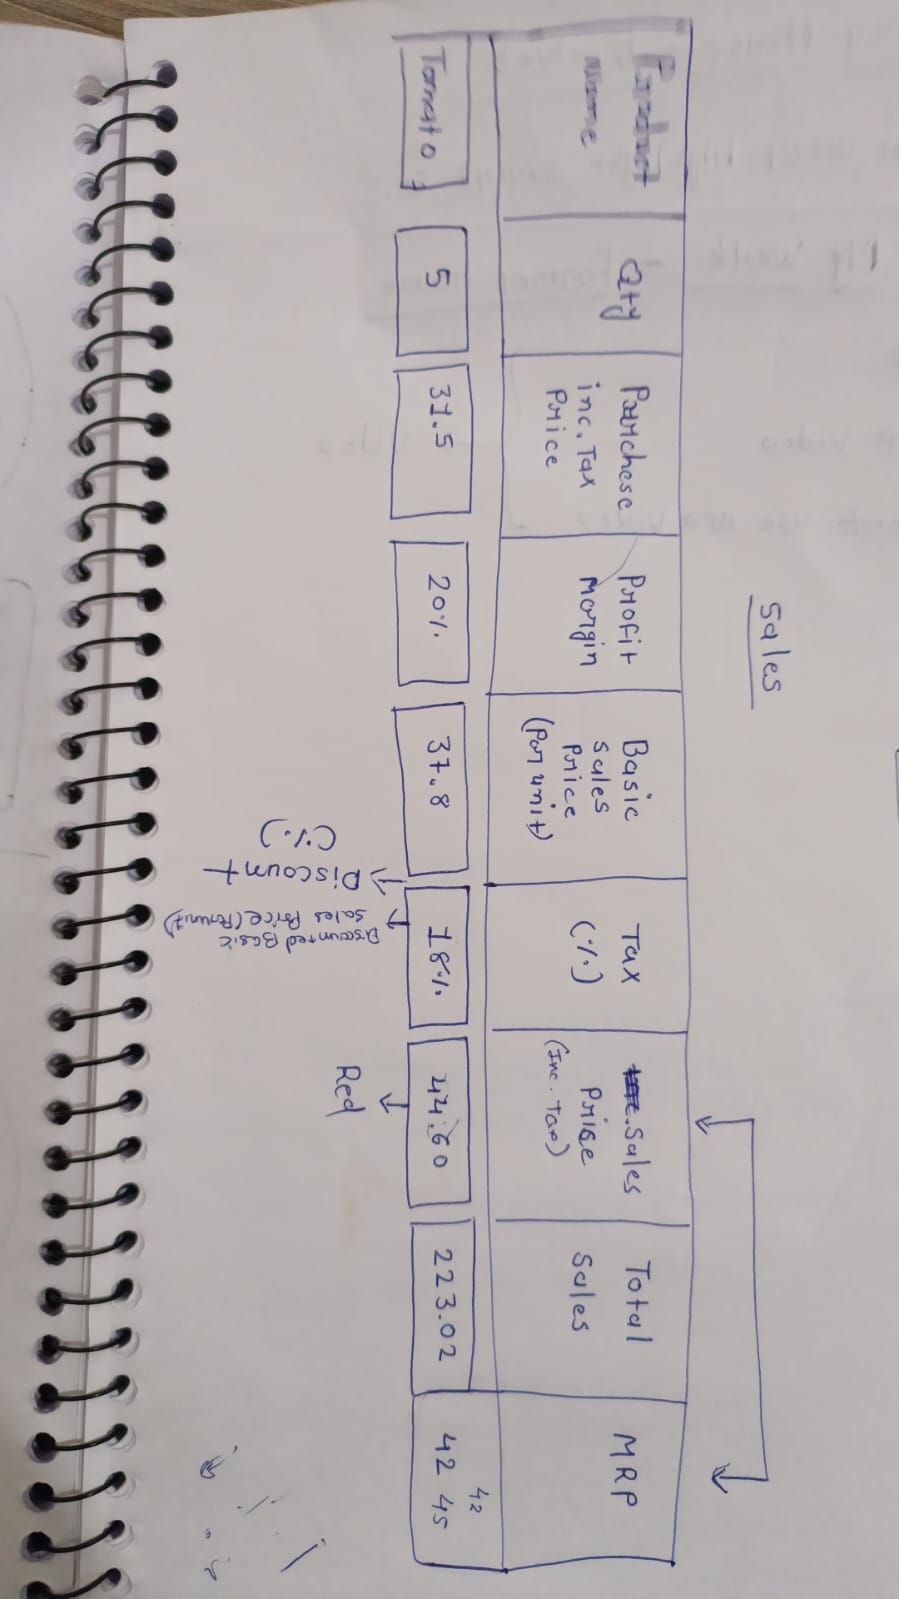 Sales
Product
Name
Qty
Purchese
inc. Tax
Price
Profit
Morgin
Basic
Sales
Price
(Par unit)
Tax
(%)
Sales
Prise
(Inc. Tax)
Total
Sales
MRP
Tomato
5
31.5
20%
37.8
18%
44.60
223.02
42
42 45
Discount
(%)
Discounted Basic
Sales Price (Per unit)
Red